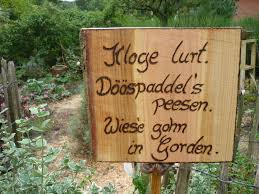 Kloge lurt.
Dööspaddel's
peesen.
Wiese gohn
in Gorden.